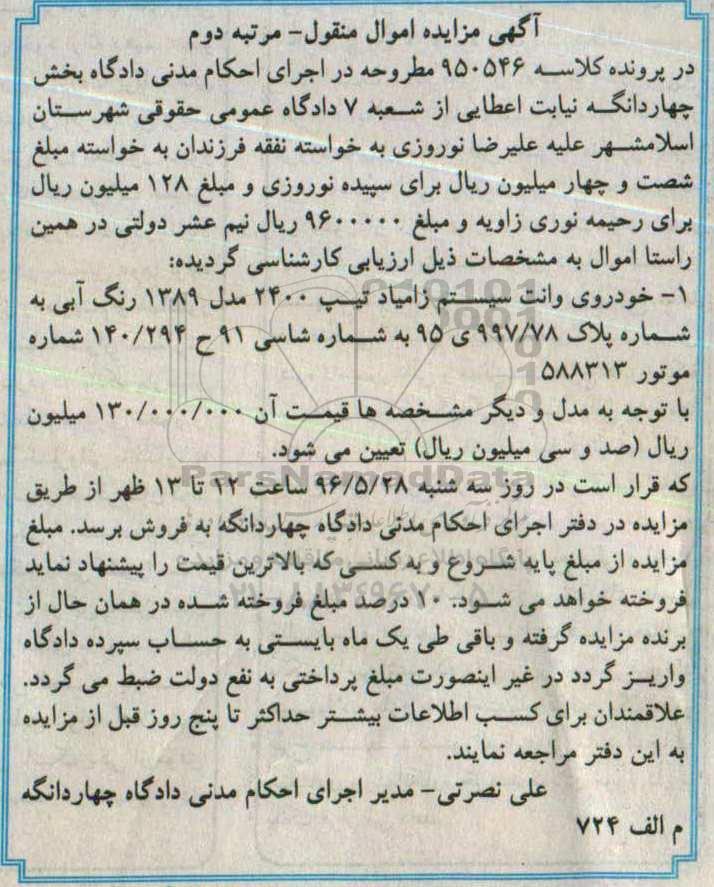 آگهی مزایده اموال منقول- مرتبه دوم
در پرونده کلاسه ۹۵۰۵۴۶ مطروحه در اجرای احکام مدنی دادگاه بخش
چهاردانگه نیابت اعطایی از شعبه ۷ دادگاه عمومی حقوقی شهرستان
اسلامشهر علیه علیرضا نوروزی به خواسته نفقه فرزندان به خواسته مبلغ
شصت و چهار میلیون ریال برای سپیده نوروزی و مبلغ ۱۲۸ میلیون ریال
برای رحیمه نوری زاویه و مبلغ ۹۶۰۰۰۰۰ ریال نیم عشر دولتی در همین
راستا اموال به مشخصات ذیل ارزیابی کارشناسی گردیده:
۱- خودروی وانت سیستم زامیاد تیپ ۲۴۰۰ مدل ۱۳۸۹ رنگ آبی به
شماره پلاک ۹۹۷/۷۸ ی ۹۵ به شماره شاسی ۹۱ ح ۱۴۰/۲۹۴ شماره
موتور ۵۸۸۳۱۳
با توجه به مدل و دیگر مشخصه ها قیمت آن ۱۳۰/۰۰۰/۰۰۰ میلیون
ریال (صد و سی میلیون ریال) تعیین می شود.
که قرار است در روز سه شنبه ۹۶/۵/۲۸ ساعت ۱۲ تا ۱۳ ظهر از طریق
مزایده در دفتر اجرای احکام مدنی دادگاه چهاردانگه به فروش برسد. مبلغ
مزایده از مبلغ پایه شروع و به کسی که بالاترین قیمت را پیشنهاد نماید
فروخته خواهد می شود. ۱۰ درصد مبلغ فروخته شده در همان حال از
برنده مزایده گرفته و باقی طی یک ماه بایستی به حساب سپرده دادگاه
واریز گردد در غیر اینصورت مبلغ پرداختی به نفع دولت ضبط می گردد.
علاقمندان برای کسب اطلاعات بیشتر حداکثر تا پنج روز قبل از مزایده
به این دفتر مراجعه نمایند.
علی نصرتی- مدیر اجرای احکام مدنی دادگاه چهاردانگه
م الف ۷۲۴
ParsNamadData